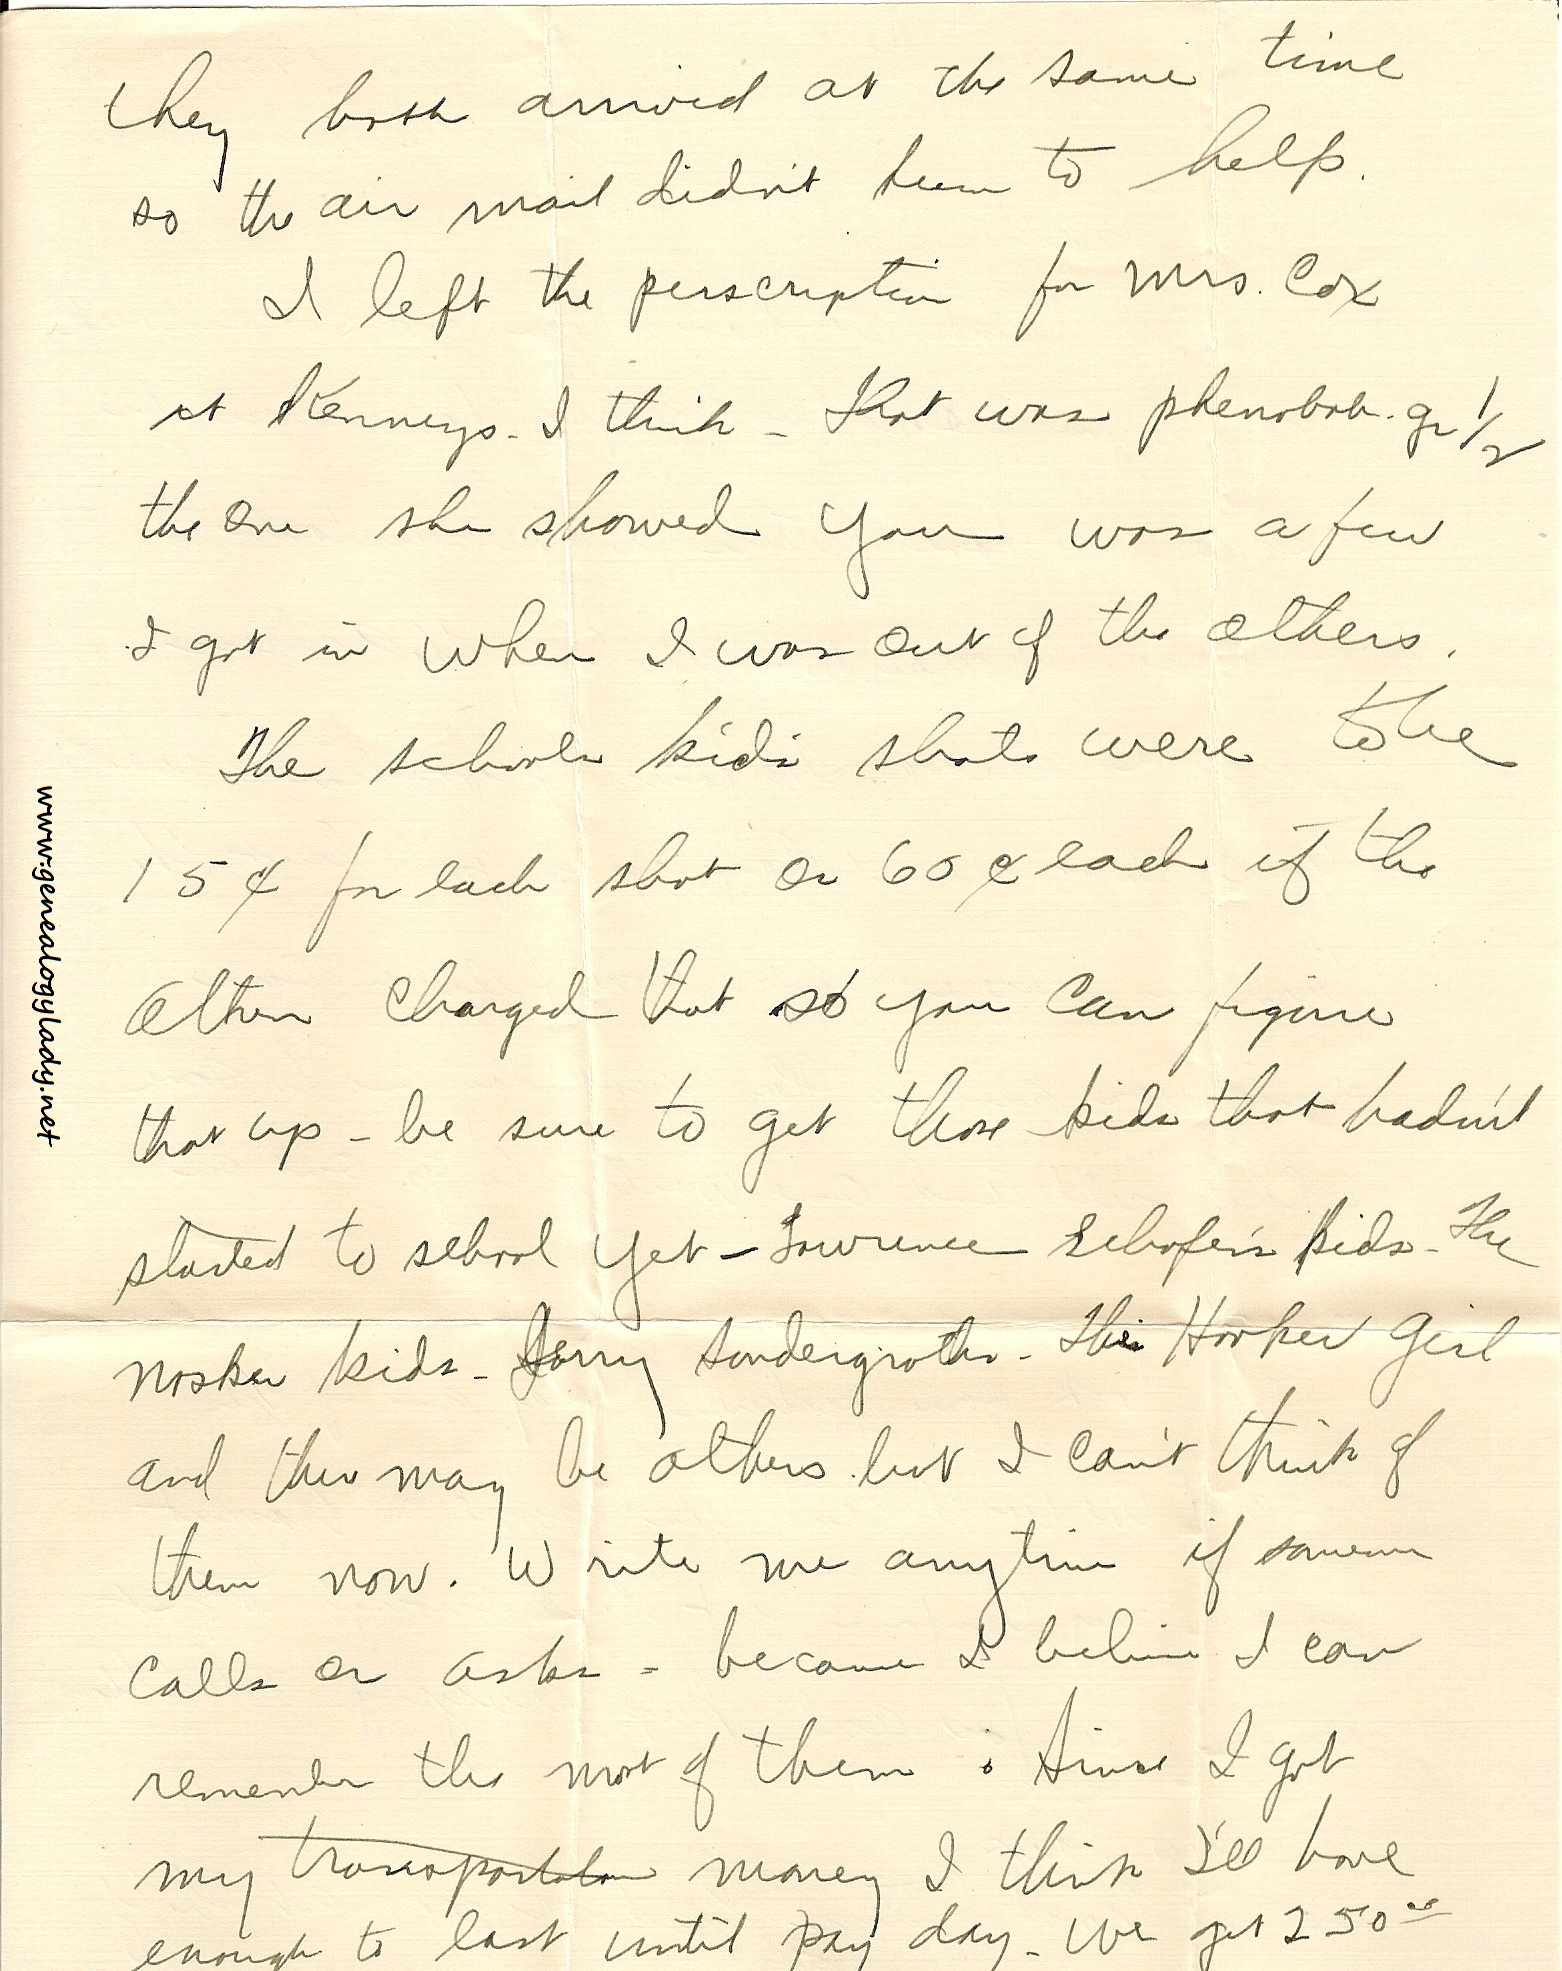 they both arrived at the same time
so the air mail didn't seem to help.
I left the perscription for Mrs. Cox
at Kenneys - I think - That was phenobarb. gr 1/2
the one she showed you was a few
I got in when I was out of the others.
The schools kids shots were to be
15¢ for each shot or 60¢ each if the
others charged that so you can figure
that up - be sure to get those kids that hadn't
started to school yet - Lawrence Schofer's kids - The
Nosker kids - Larry Sondergroths - The Hooker Girl
and there may be others but I can't think of
them now. Write me anytime if someone
calls or asks - because I believe I can
remember the most of them. Since I got
my transportation money I think I'll have
enough to last until pay day - We get 250.00
www.genealogylady.net